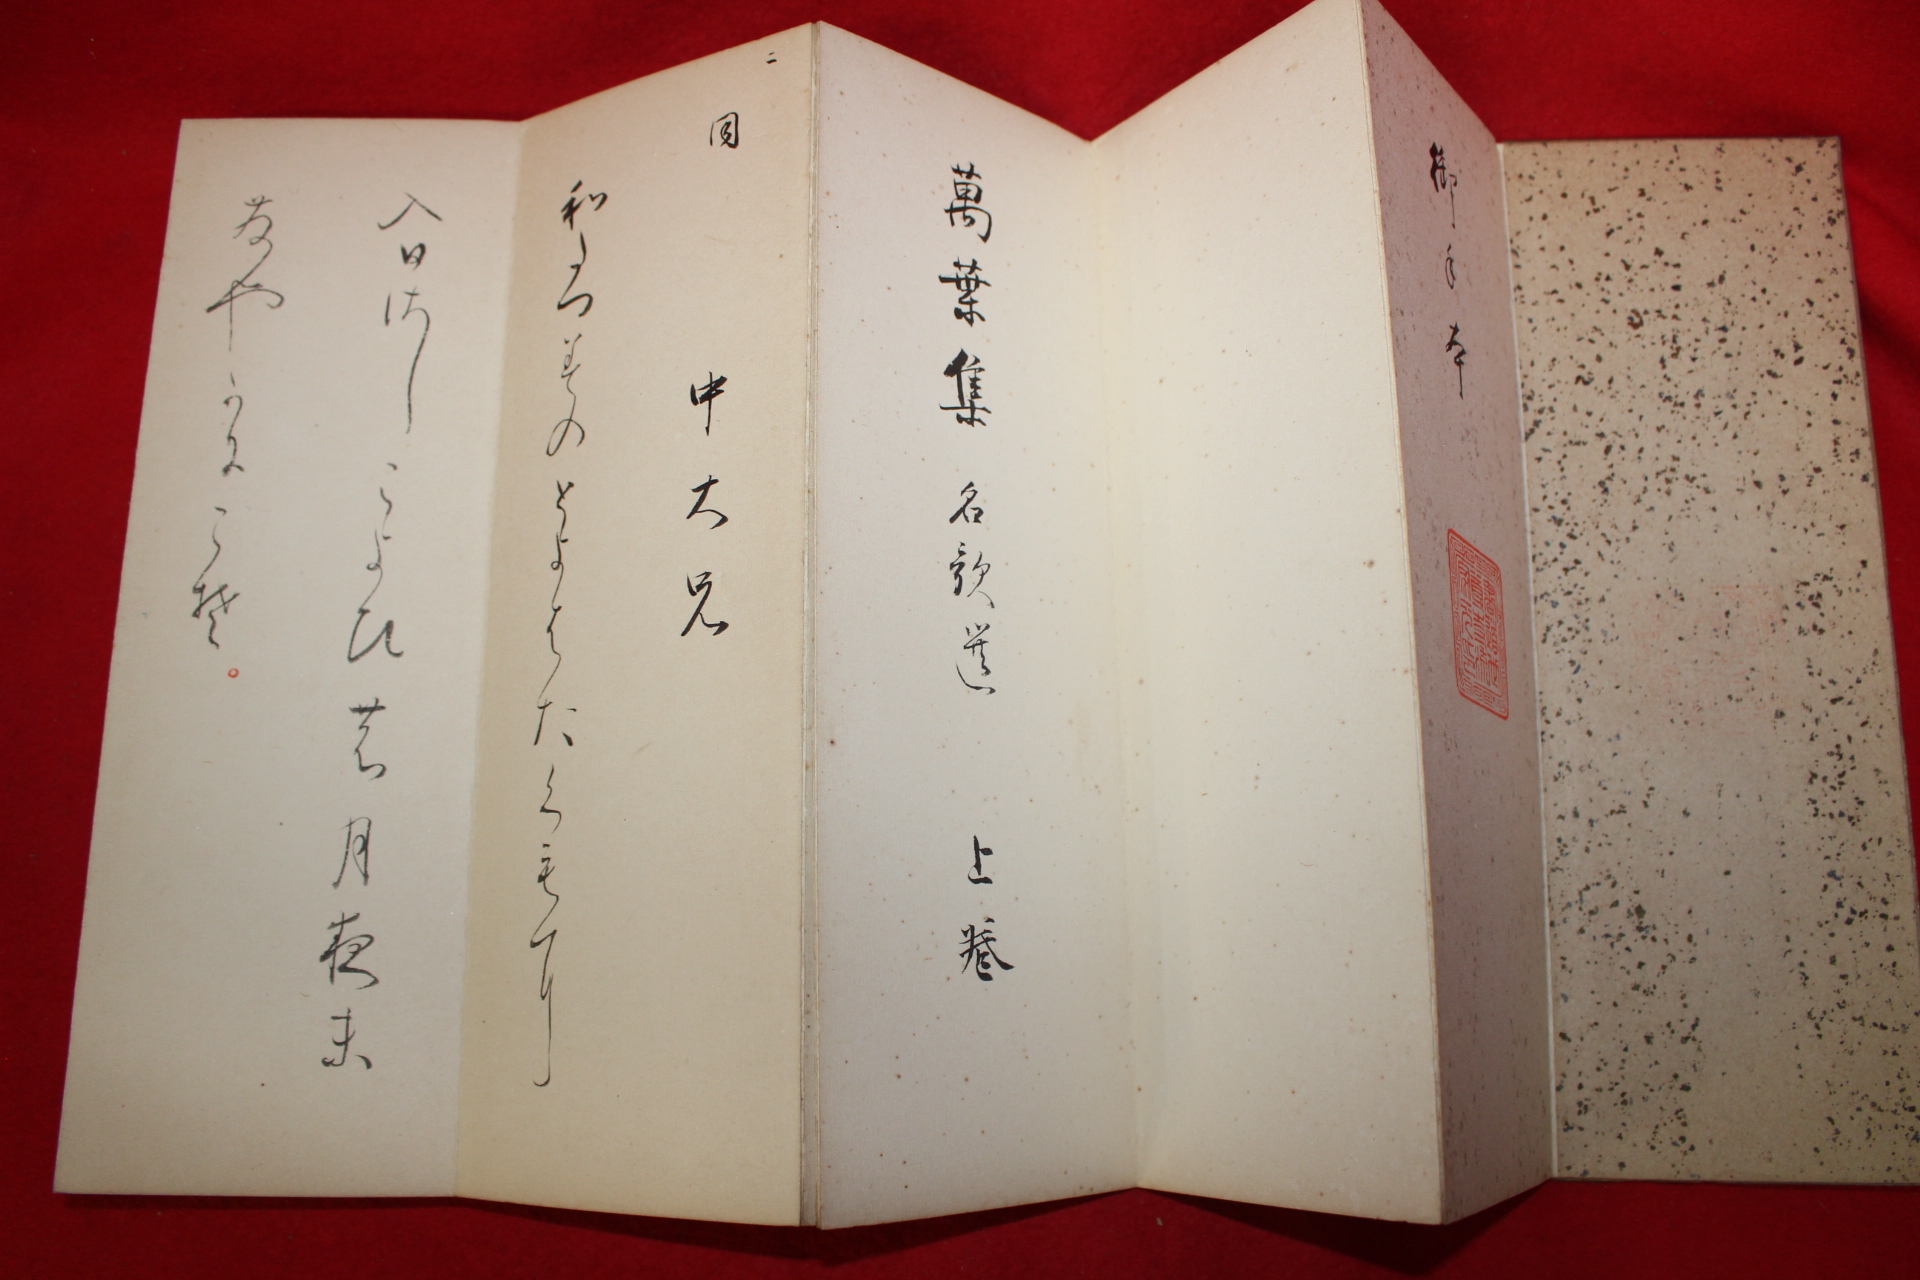 御手本
萬葉集名歌選 上巻
二
同
中大兄
和たつみのとよはたくも耳
入日佐しこよひ乃月夜末
左やかにこ楚